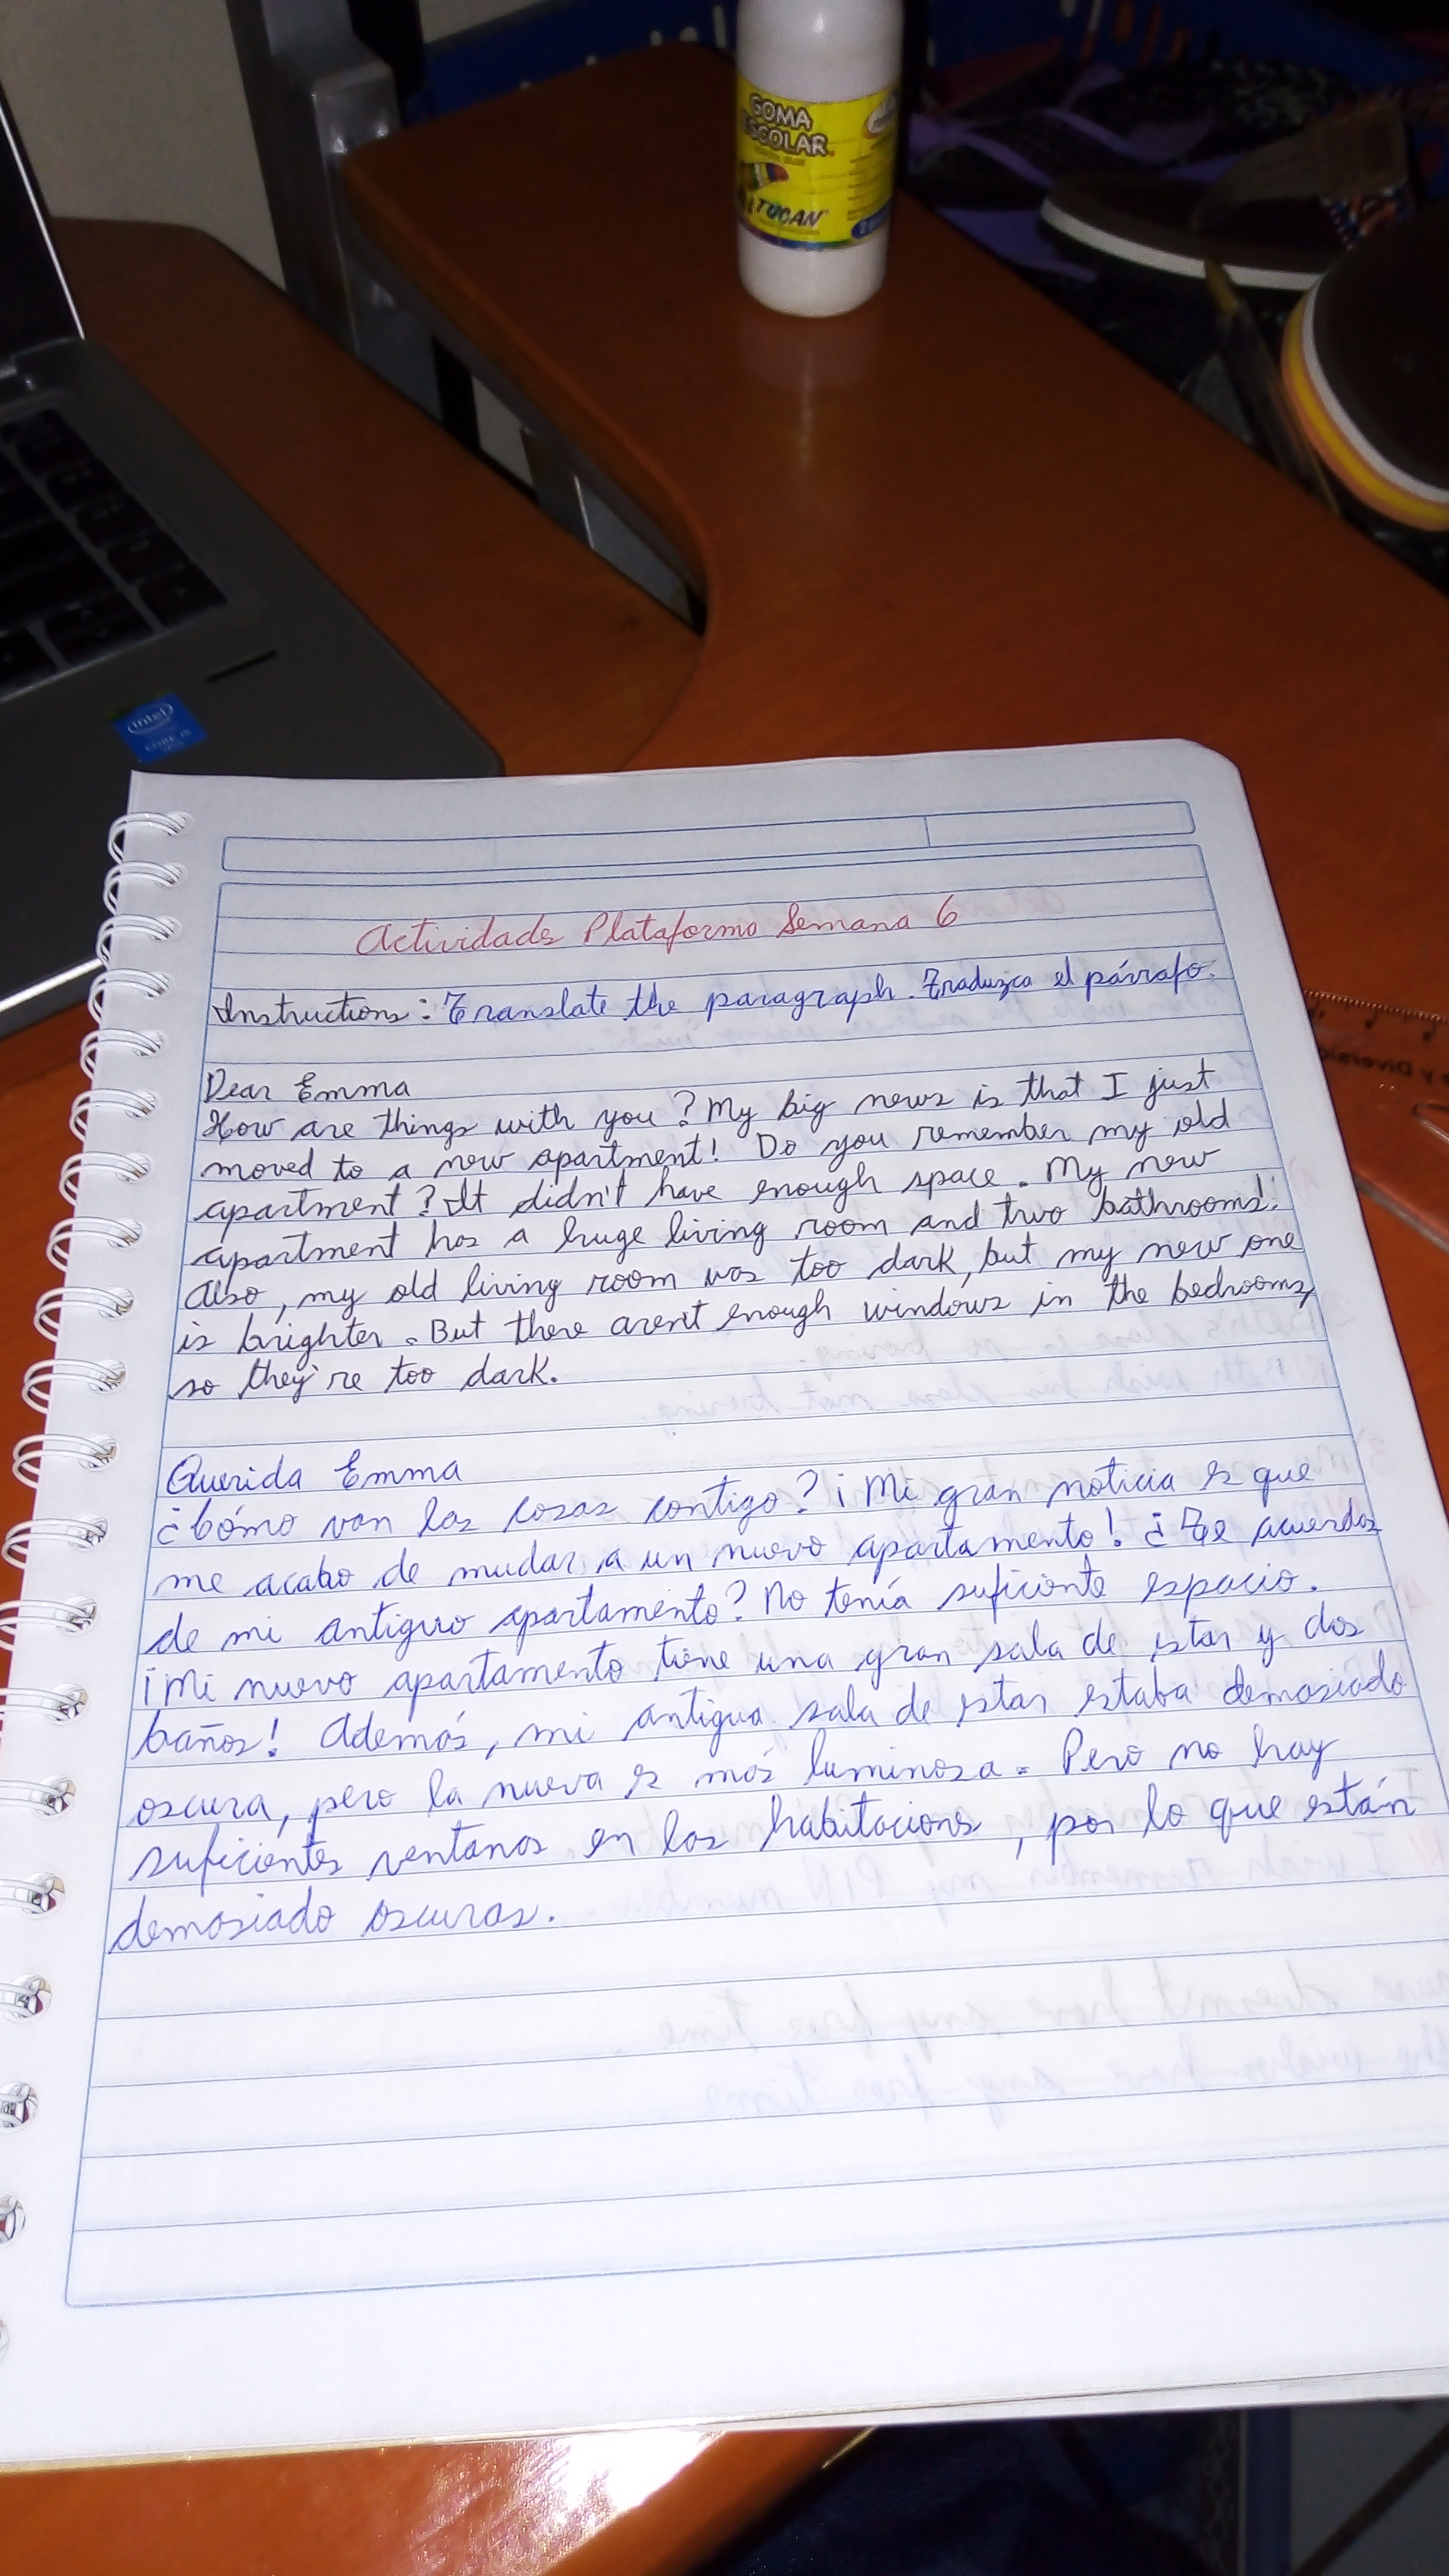 GOMA
ESCOLAR
TUCAN
intel
CORE i5
Actividades Plataforma Semana 6
Instructions: Translate the paragraph. Traduzca el párrafo.
Dear Emma
How are things with you? My big news is that I just
moved to a new apartment! Do you remember my old
apartment? It didn't have enough space. My new
apartment has a huge living room and two bathrooms!
Also, my old living room was too dark, but my new one
is brighter. But there aren't enough windows in the bedrooms,
so they're too dark.
Querida Emma
¿Cómo van las cosas contigo? ¡Mi gran noticia es que
me acabo de mudar a un nuevo apartamento! ¿Te acuerdas
de mi antiguo apartamento? No tenía suficiente espacio.
¡Mi nuevo apartamento tiene una gran sala de estar y dos
baños! Además, mi antigua sala de estar estaba demasiado
oscura, pero la nueva es más luminosa. Pero no hay
suficientes ventanas en las habitaciones, por lo que están
demasiado oscuras.